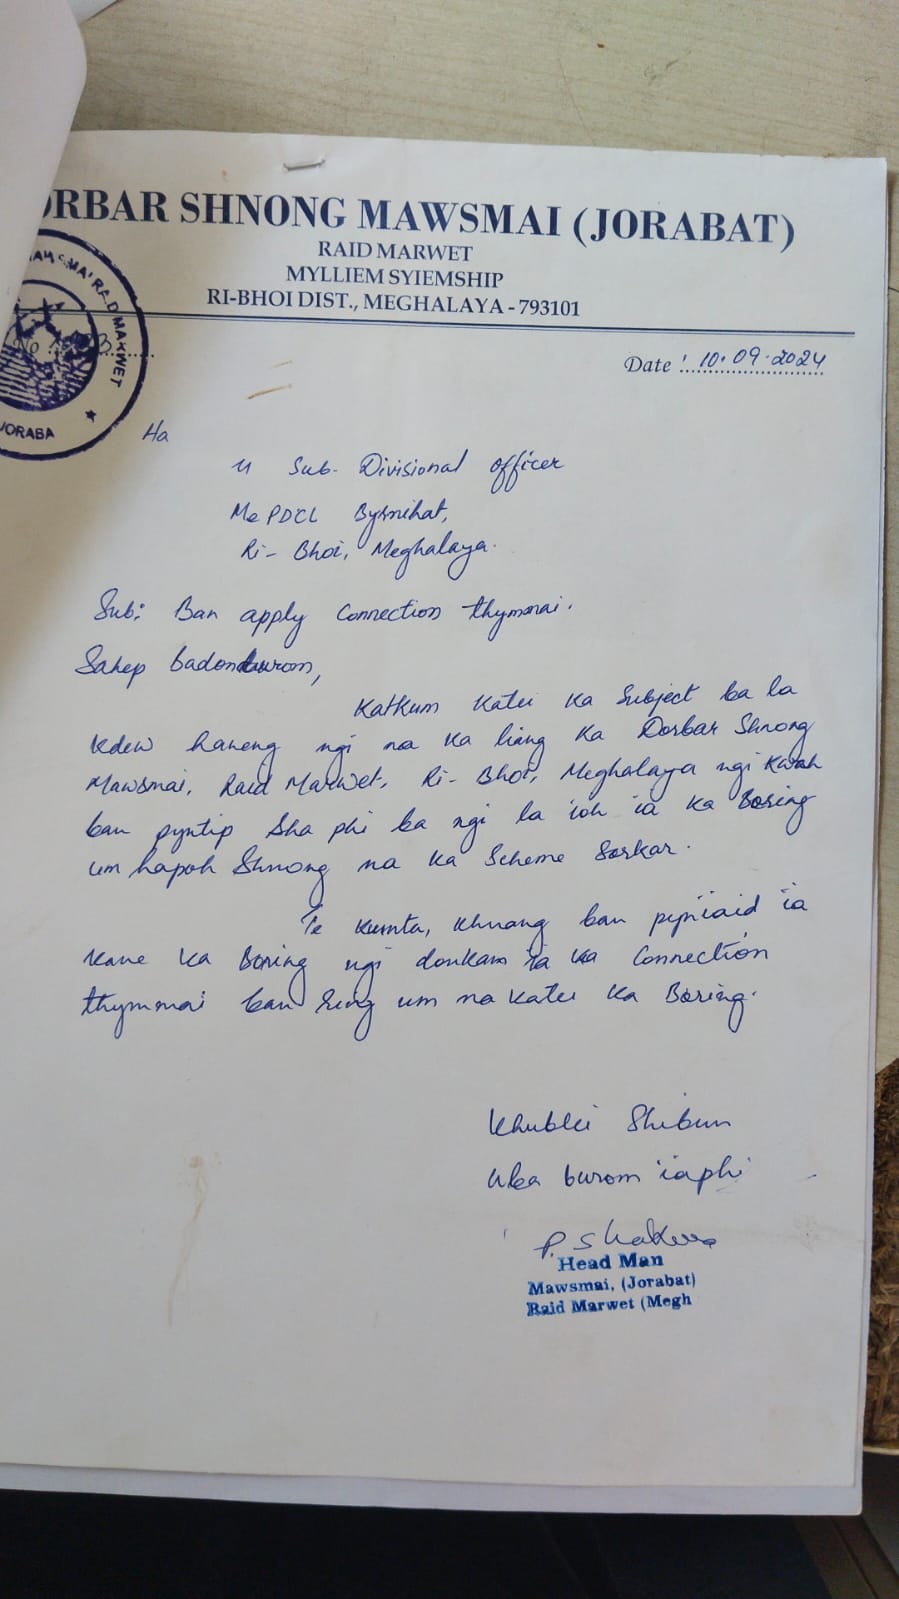 ORBAR SHNONG MAWSMAI (JORABAT)
RAID MARWET
MYLLIEM SYIEMSHIP
RI-BHOI DIST., MEGHALAYA - 793101
MAWSMAI RAID MARWET
JORABA
No
Date : 10.09.2024
Ha
U Sub-Divisional Officer
MePDCL Byrnihat,
Ri-Bhoi, Meghalaya.
Sub: Ban apply Connection thymmai.
Sahep badonburom,
Katkum katei ka Subject ba la
kdew haneng ngi na ka liang ka Dorbar Shnong
Mawsmai, Raid Marwet, Ri-Bhoi, Meghalaya ngi Kwah
ban pyntip sha phi ba ngi la ioh ia ka Boring
um hapoh Shnong na ka Scheme Sorkar.
Te kumta, khnang ban pyniaid ia
kane ka Boring ngi donkam ia ka Connection
thymmai ban ring um na katei ka Boring.
Khublei Shibun
Uba burom iaphi
P. Shakwa
Head Man
Mawsmai, (Jorabat)
Raid Marwet (Megh